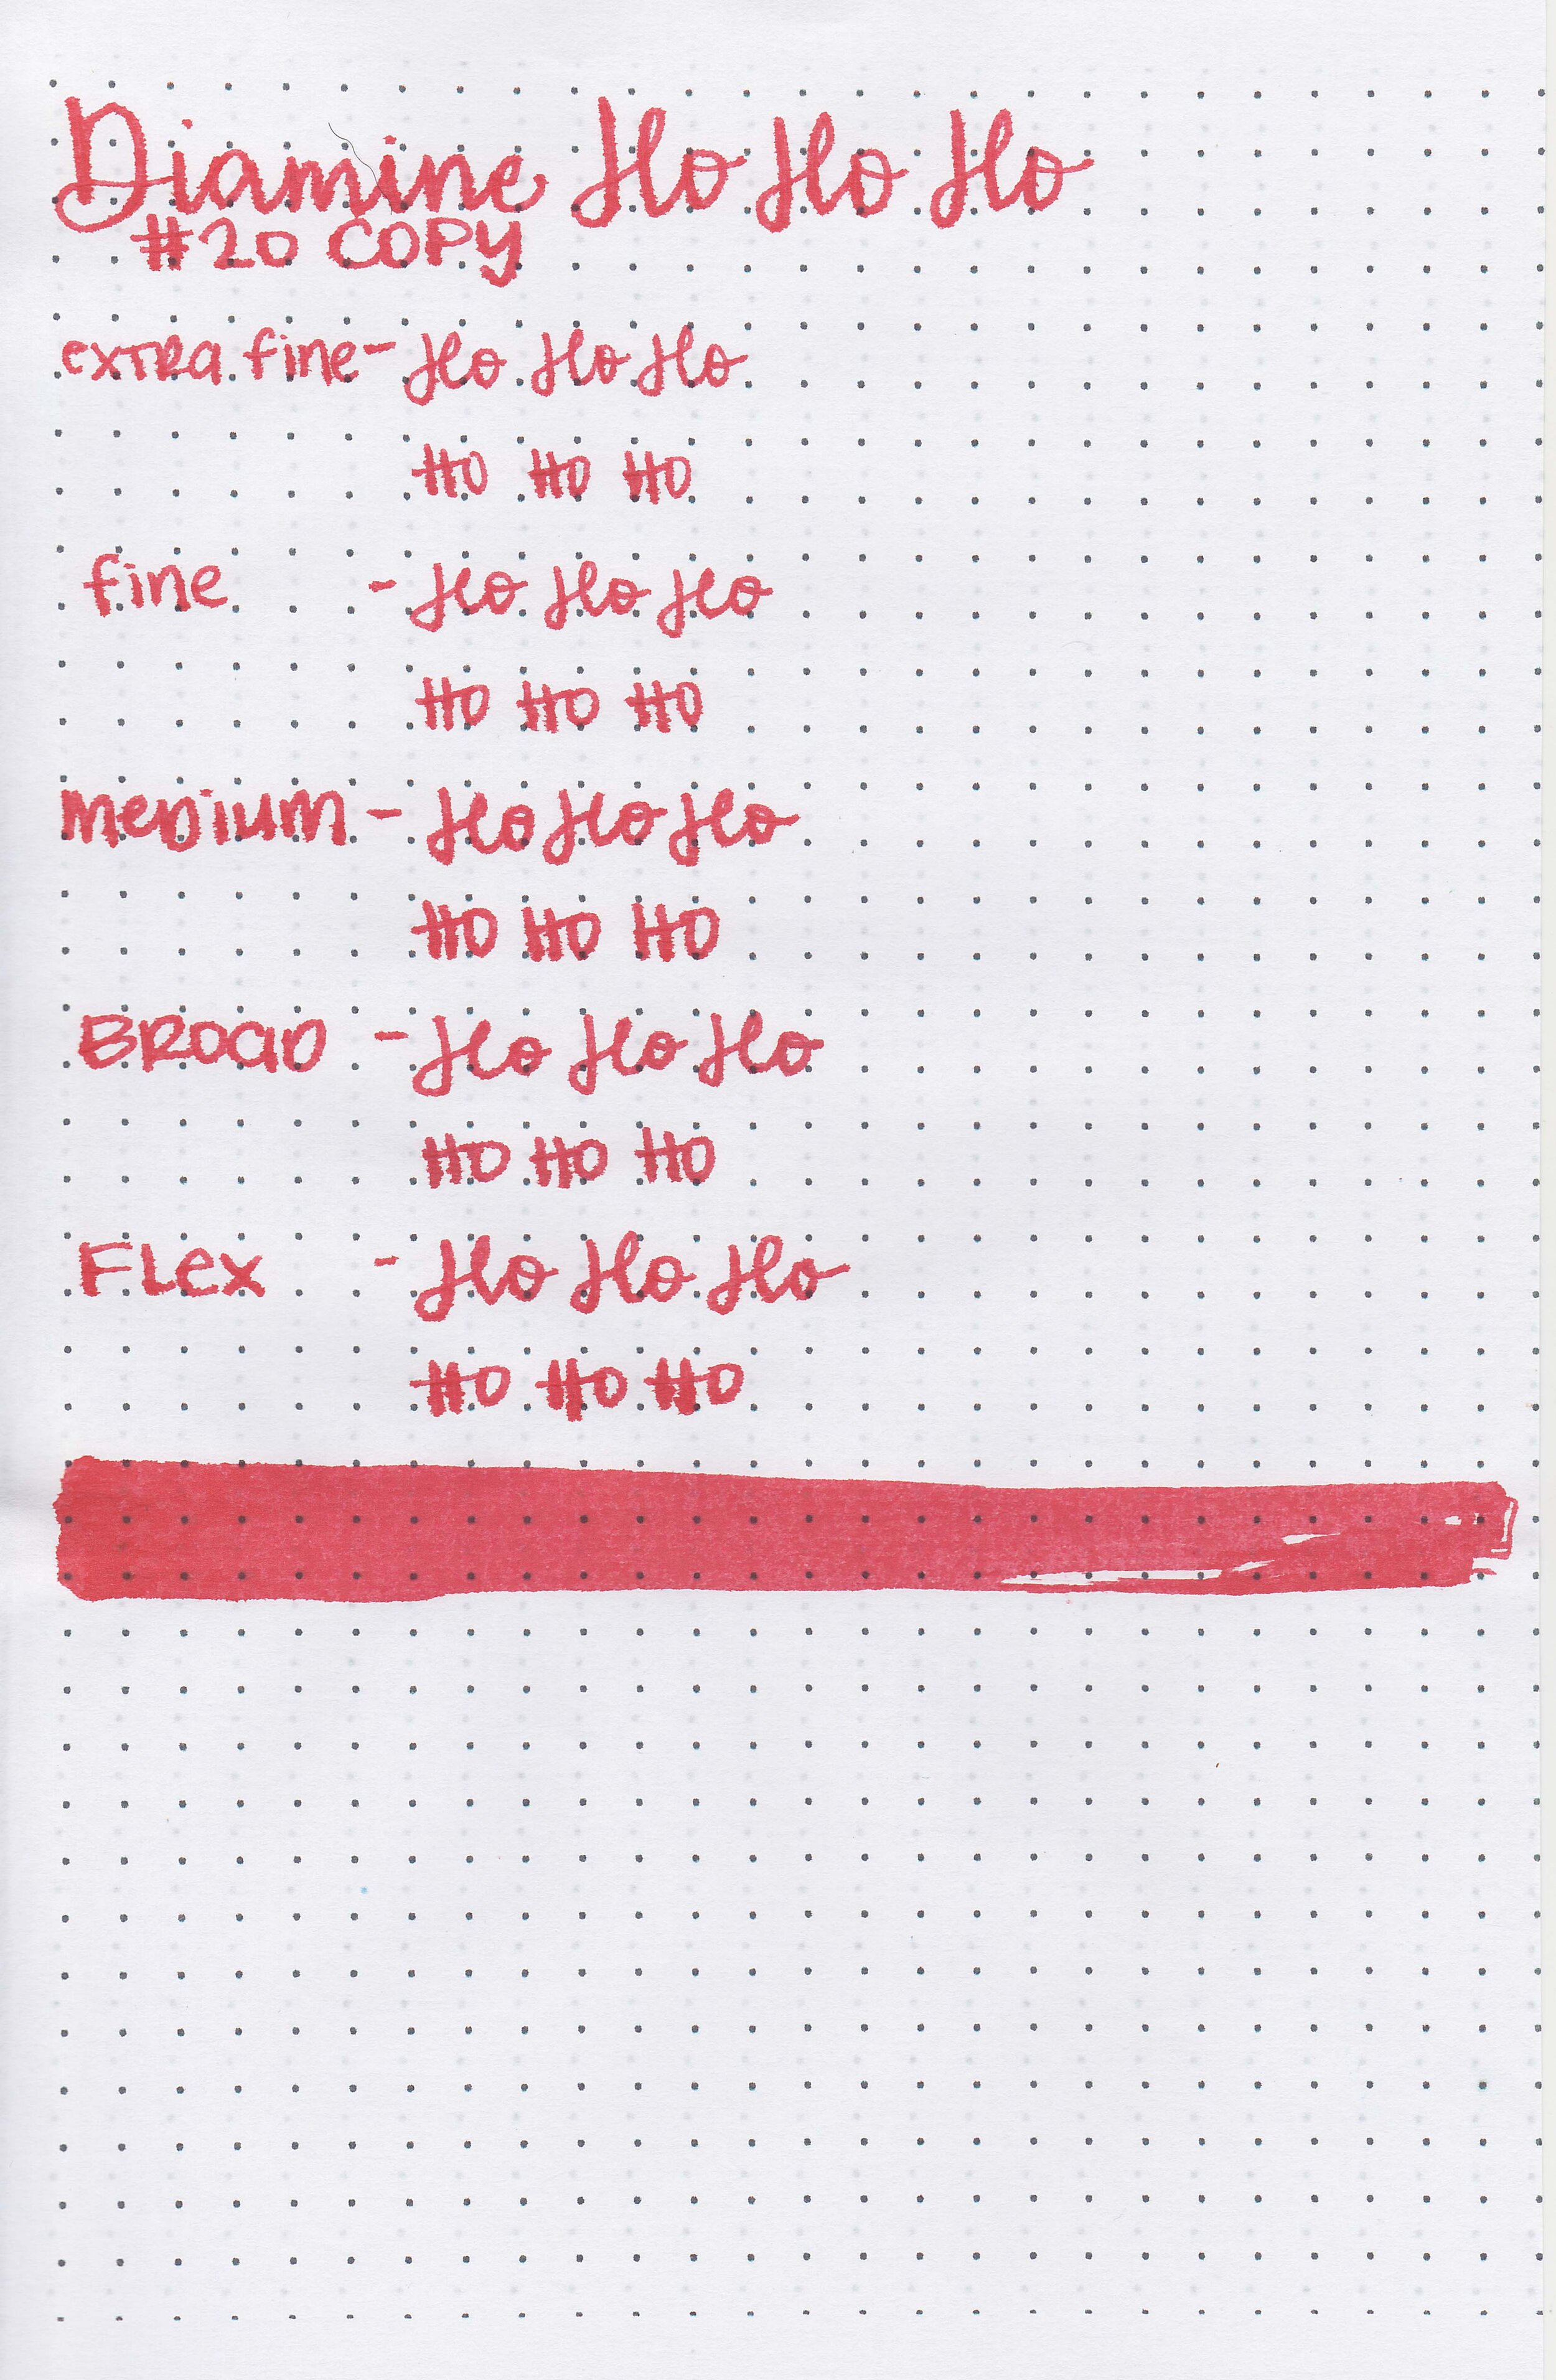 Diamine Ho Ho Ho
#20 COPY
extRa fine - Ho Ho Ho
HO HO HO
fine - Ho Ho Ho
HO HO HO
meDium - Ho Ho Ho
HO HO HO
BROaD - Ho Ho Ho
HO HO HO
FLex - Ho Ho Ho
HO HO HO